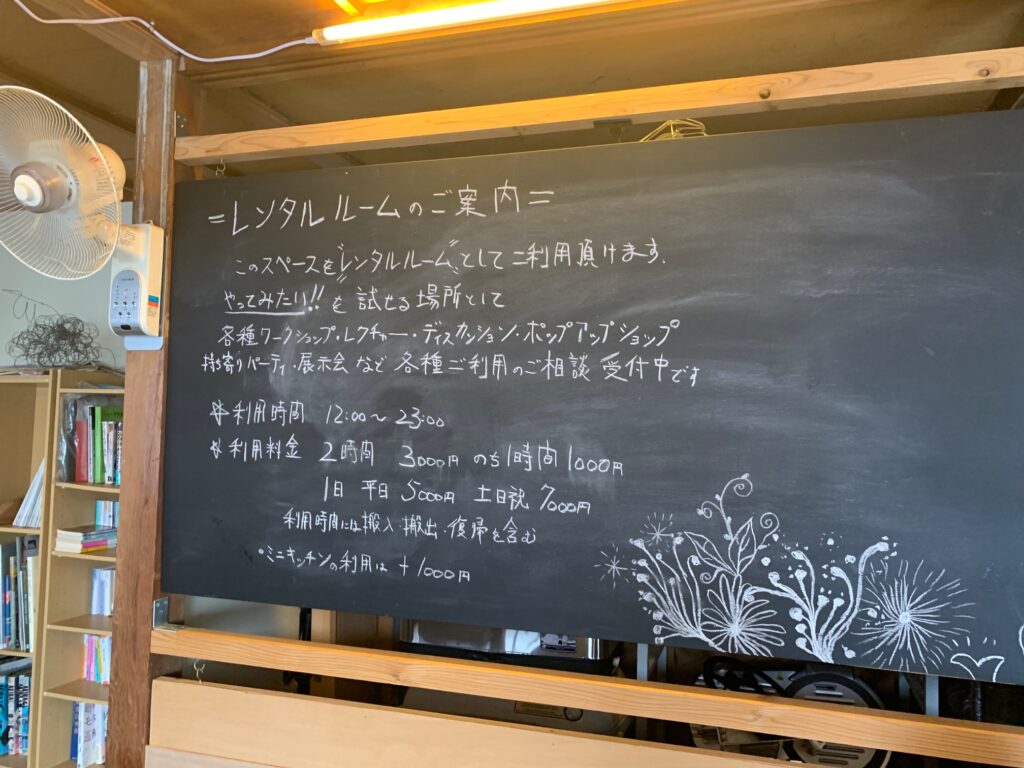 =レンタルルームのご案内=
このスペースを"レンタルルーム"としてご利用頂けます.
やってみたい!!を試せる場所として
各種ワークショップ・レクチャー・ディスカッション・ポップアップショップ
持ち寄りパーティ・展示会など各種ご利用のご相談受付中です
*利用時間 12:00〜23:00
*利用料金 2時間 3000円 のち1時間1000円
1日 平日5000円 土日祝7000円
利用時間には搬入・搬出・復帰を含む
•ミニキッチンの利用は+1000円